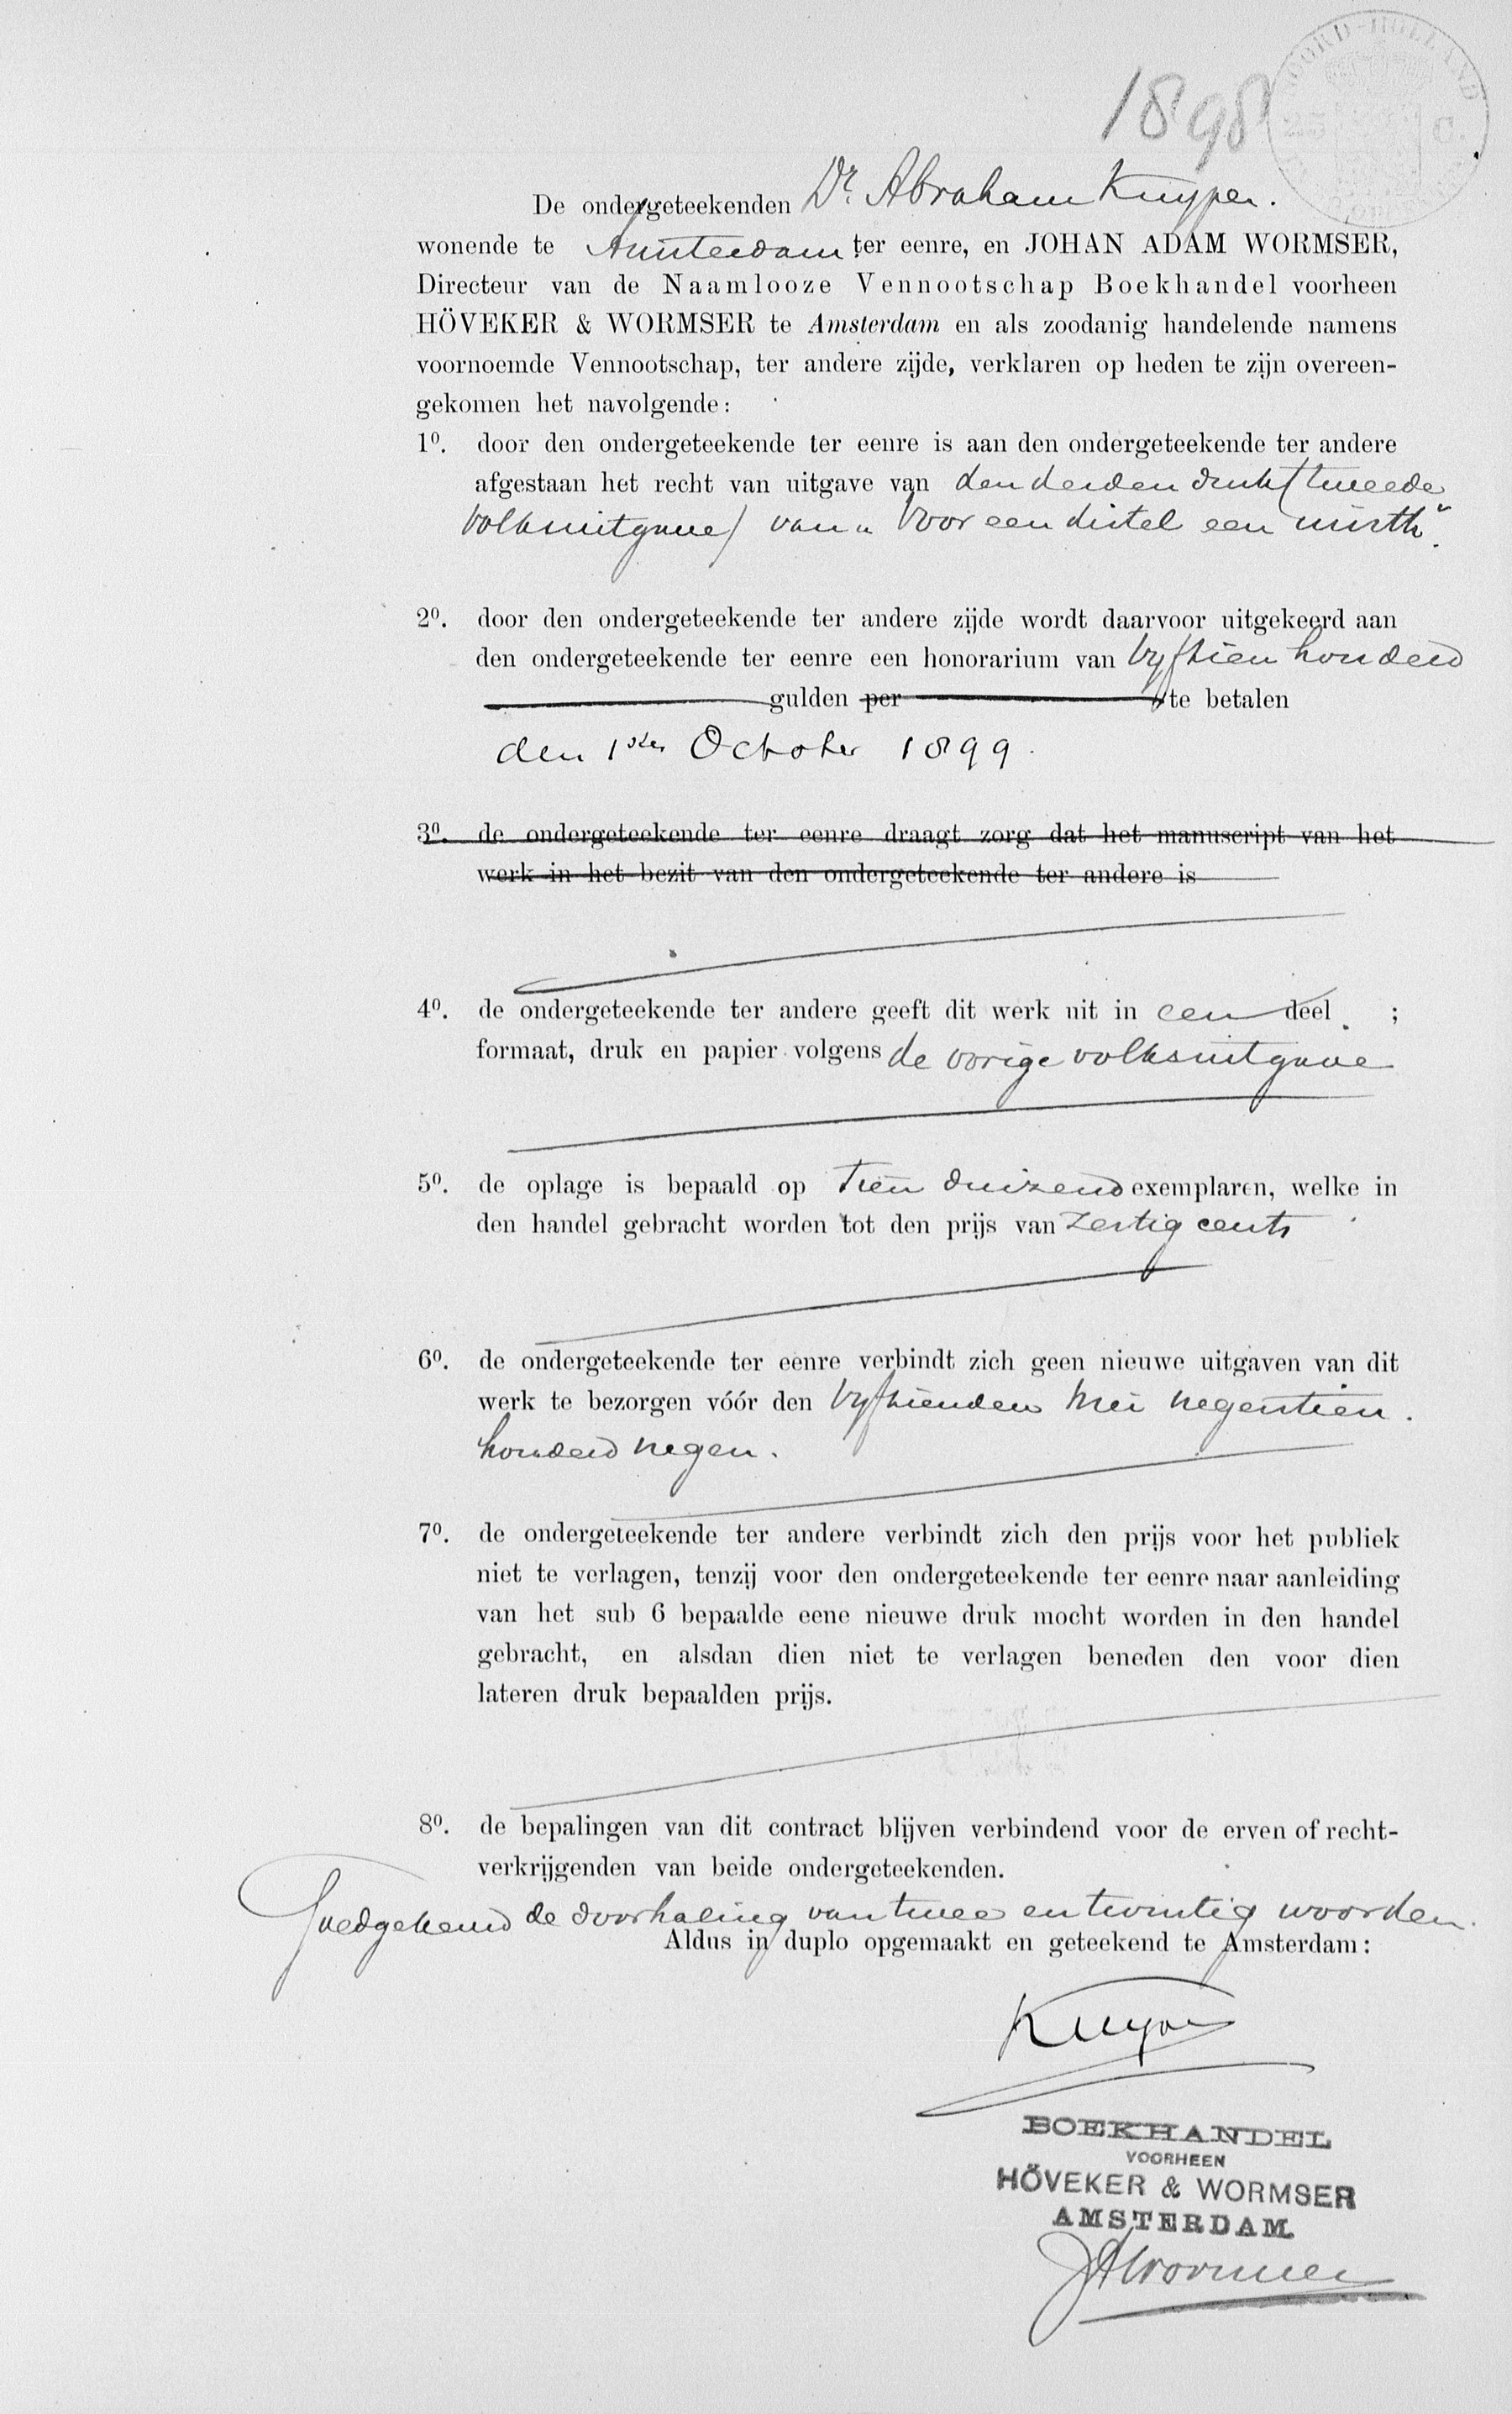 1898
NOORD-HOLLAND
25 C.
De ondergeteekenden Dr. Abraham Kuyper.
wonende te Amsterdam ter eenre, en JOHAN ADAM WORMSER,
Directeur van de Naamlooze Vennootschap Boekhandel voorheen
HÖVEKER & WORMSER te Amsterdam en als zoodanig handelende namens
voornoemde Vennootschap, ter andere zijde, verklaren op heden te zijn overeen-
gekomen het navolgende:
1⁰. door den ondergeteekende ter eenre is aan den ondergeteekende ter andere
afgestaan het recht van uitgave van den derden druk (tweede
volksuitgave) van „Voor een distel een mirth".
2⁰. door den ondergeteekende ter andere zijde wordt daarvoor uitgekeerd aan
den ondergeteekende ter eenre een honorarium van vyftien honderd
gulden per te betalen
den 1sten October 1899.
3⁰. de ondergeteekende ter eenre draagt zorg dat het manuscript van het
werk in het bezit van den ondergeteekende ter andere is
4⁰. de ondergeteekende ter andere geeft dit werk uit in een deel ;
formaat, druk en papier volgens de vorige volksuitgave
5⁰. de oplage is bepaald op Tien duizend exemplaren, welke in
den handel gebracht worden tot den prijs van Zestig cents
6⁰. de ondergeteekende ter eenre verbindt zich geen nieuwe uitgaven van dit
werk te bezorgen vóór den vyftienden Mei negentien
honderd negen.
7⁰. de ondergeteekende ter andere verbindt zich den prijs voor het publiek
niet te verlagen, tenzij voor den ondergeteekende ter eenre naar aanleiding
van het sub 6 bepaalde eene nieuwe druk mocht worden in den handel
gebracht, en alsdan dien niet te verlagen beneden den voor dien
lateren druk bepaalden prijs.
8⁰. de bepalingen van dit contract blijven verbindend voor de erven of recht-
verkrijgenden van beide ondergeteekenden.
Goedgekeurd de doorhaling van twee en twintig woorden.
Aldus in duplo opgemaakt en geteekend te Amsterdam:
Kuyper
BOEKHANDEL
VOORHEEN
HÖVEKER & WORMSER
AMSTERDAM.
JAWormser